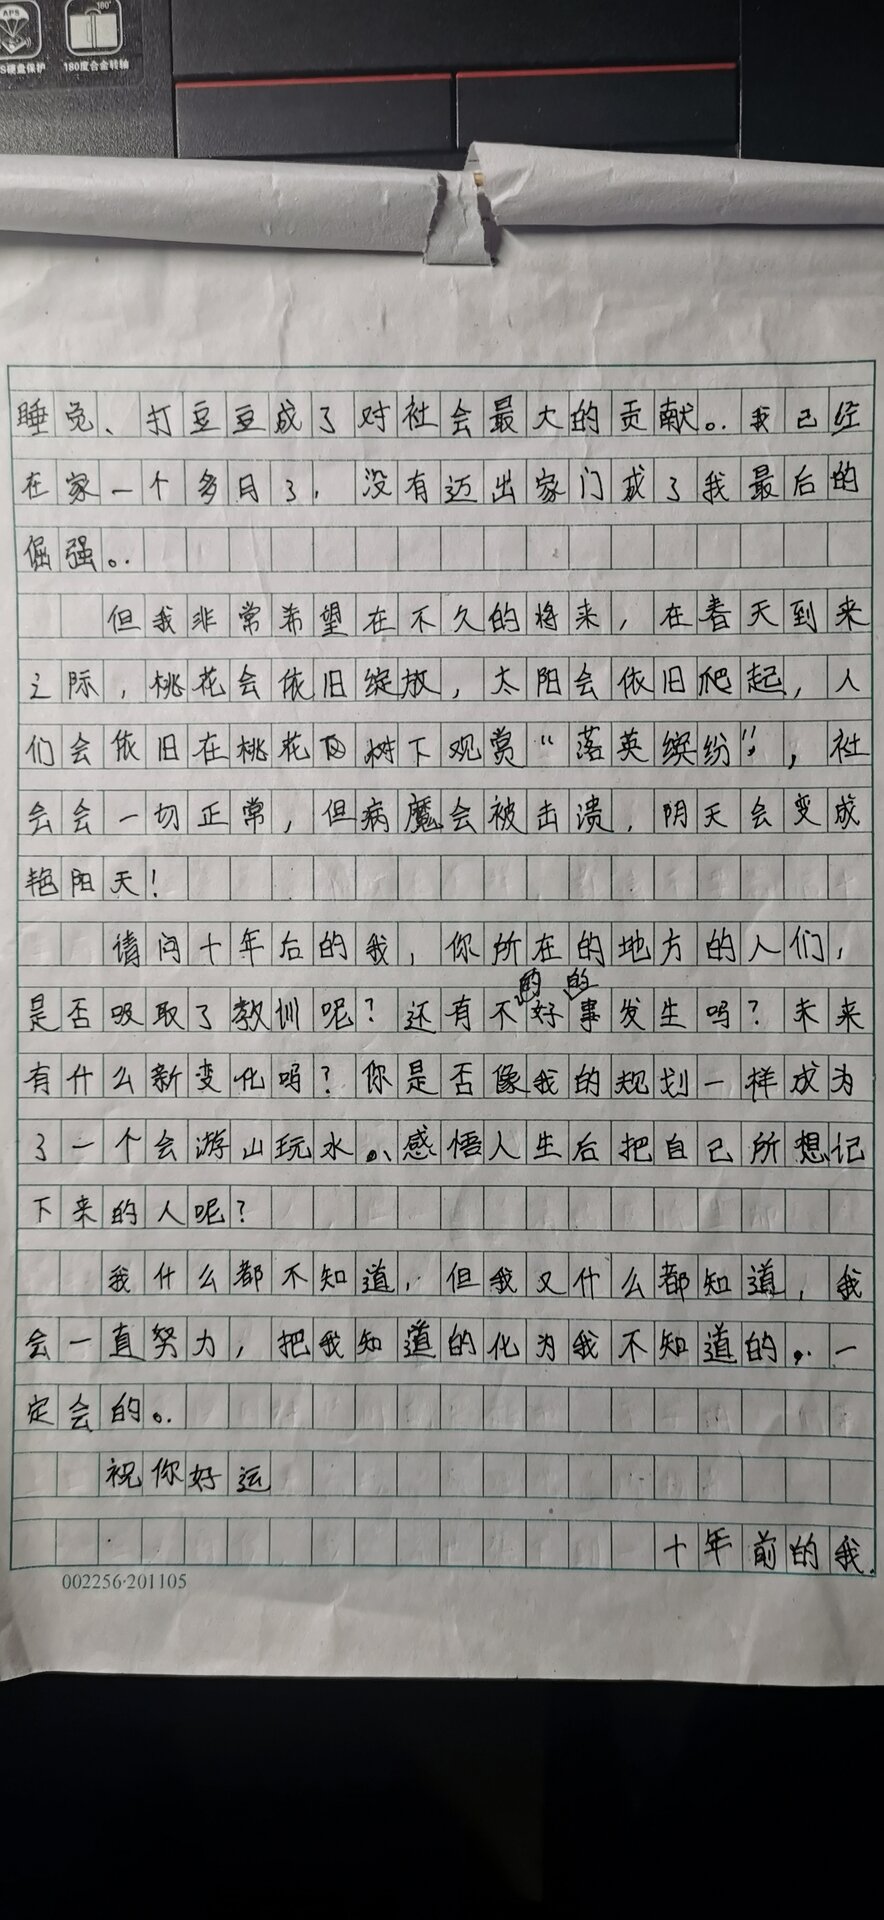 APS
硬盘保护
180°
180度合金转轴
睡觉、打豆豆成了对社会最大的贡献。我已经
在家一个多月了,没有迈出家门成了我最后的
倔强。
但我非常希望在不久的将来,在春天到来
之际,桃花会依旧绽放,太阳会依旧爬起,人
们会依旧在桃花树下观赏“落英缤纷”,社
会会一切正常,但病魔会被击溃,阴天会变成
艳阳天!
请问十年后的我,你所在的地方的人们,
是否吸取了教训呢?还有不好的事发生吗?未来
有什么新变化吗?你是否像我的规划一样成为
了一个会游山玩水、感悟人生后把自己所想记
下来的人呢?
我什么都不知道,但我又什么都知道,我
会一直努力,把我知道的化为我不知道的,一
定会的。
祝你好运
十年前的我.
002256·201105